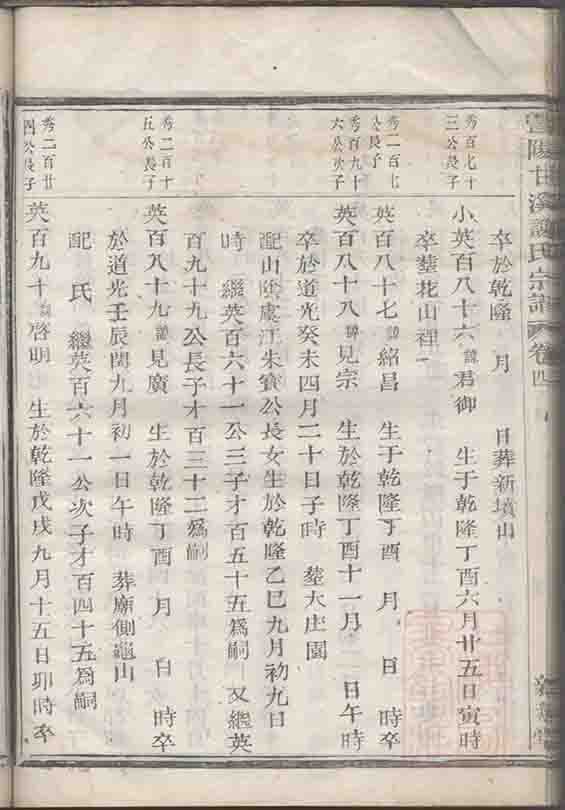 陽甘溪 氏宗譜 卷四
卒於乾隆 月 日葬新墳山
秀百七十三公長子
小英百八十六諱君御 生于乾隆丁酉六月廿五日寅時
卒葬花山裡
秀一百七 公長子
英百八十七諱紹昌 生于乾隆丁酉 月 日 時卒
秀百九十六公次子
英百八十八諱見宗 生於乾隆丁酉十一月 二 日午時
卒於道光癸未四月二十日子時 葬大庄園
配山陰虞江朱寶公長女生於乾隆乙巳九月初九日
時 繼英百六十一公三子才百五十五為嗣 又繼英
百九十九公長子才百三十二為嗣
秀二百十五公長子
英百八十九諱見廣 生於乾隆丁酉 月 日 時卒
於道光壬辰閏九月初一日午時 葬廟側龜山
配 氏 繼英百六十一公次子才百四十五為嗣
秀二百廿四公長子
英百九十諱啓明 生於乾隆戊戌九月十五日卯時卒